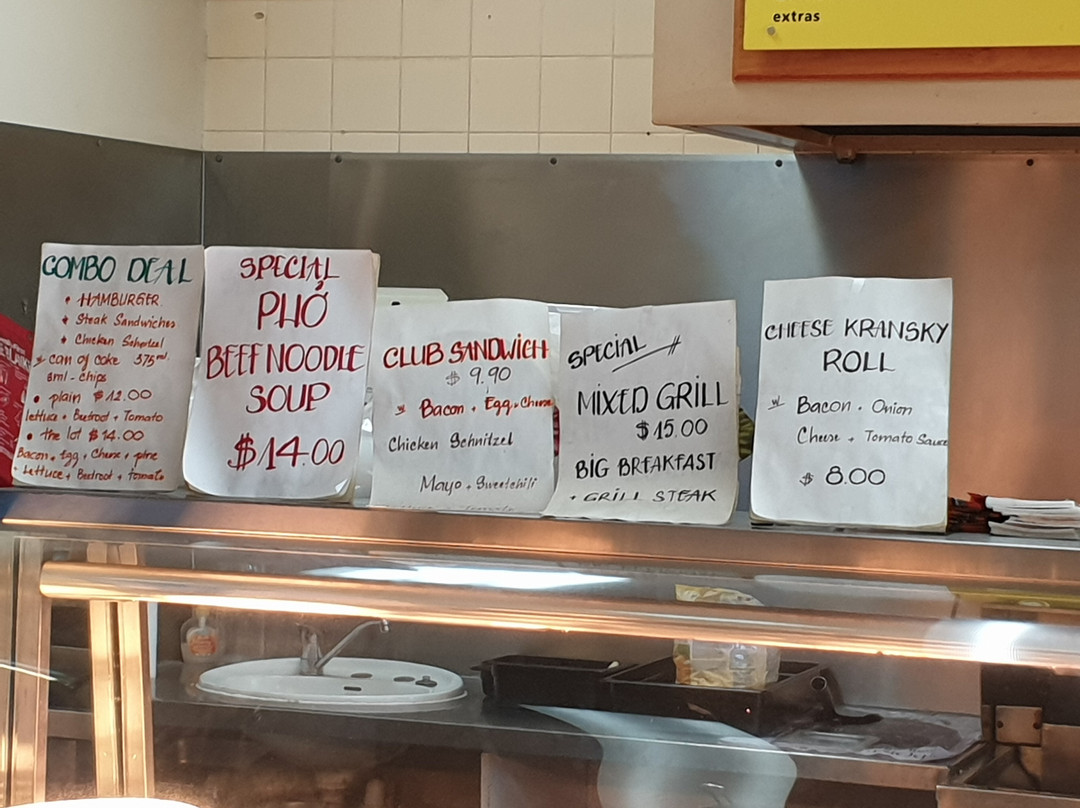 extras
COMBO DEAL
• HAMBURGER
• Steak Sandwiches
• Chicken Schnitzel
w can of coke 375ml.
sml - chips
• plain $12.00
lettuce + Beetroot + Tomato
• the lot $14.00
Bacon + Egg + Cheese + pine
+ Lettuce + Beetroot + tomato
SPECIAL
PHỞ
BEEF NOODLE
SOUP
$14.00
CLUB SANDWICH
$ 9.90
w Bacon + Egg + Cheese
Chicken Schnitzel
Mayo + Sweetchili
SPECIAL
MIXED GRILL
$15.00
BIG BREAKFAST
+ GRILL STEAK
CHEESE KRANSKY
ROLL
w Bacon + Onion
Cheese + Tomato Sauce
$ 8.00